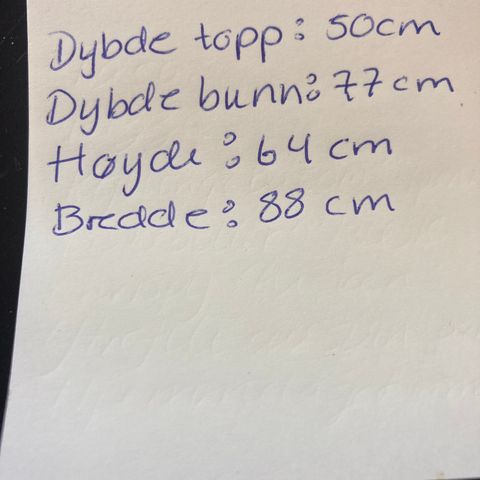 Dybde topp: 50cm
Dybde bunn: 77 cm
Høyde: 64 cm
Bredde: 88 cm